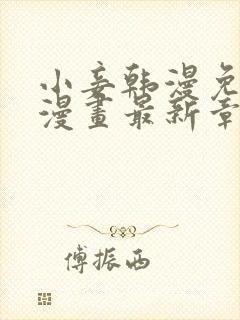 小妾韩漫免
漫畫最新章
傅振西